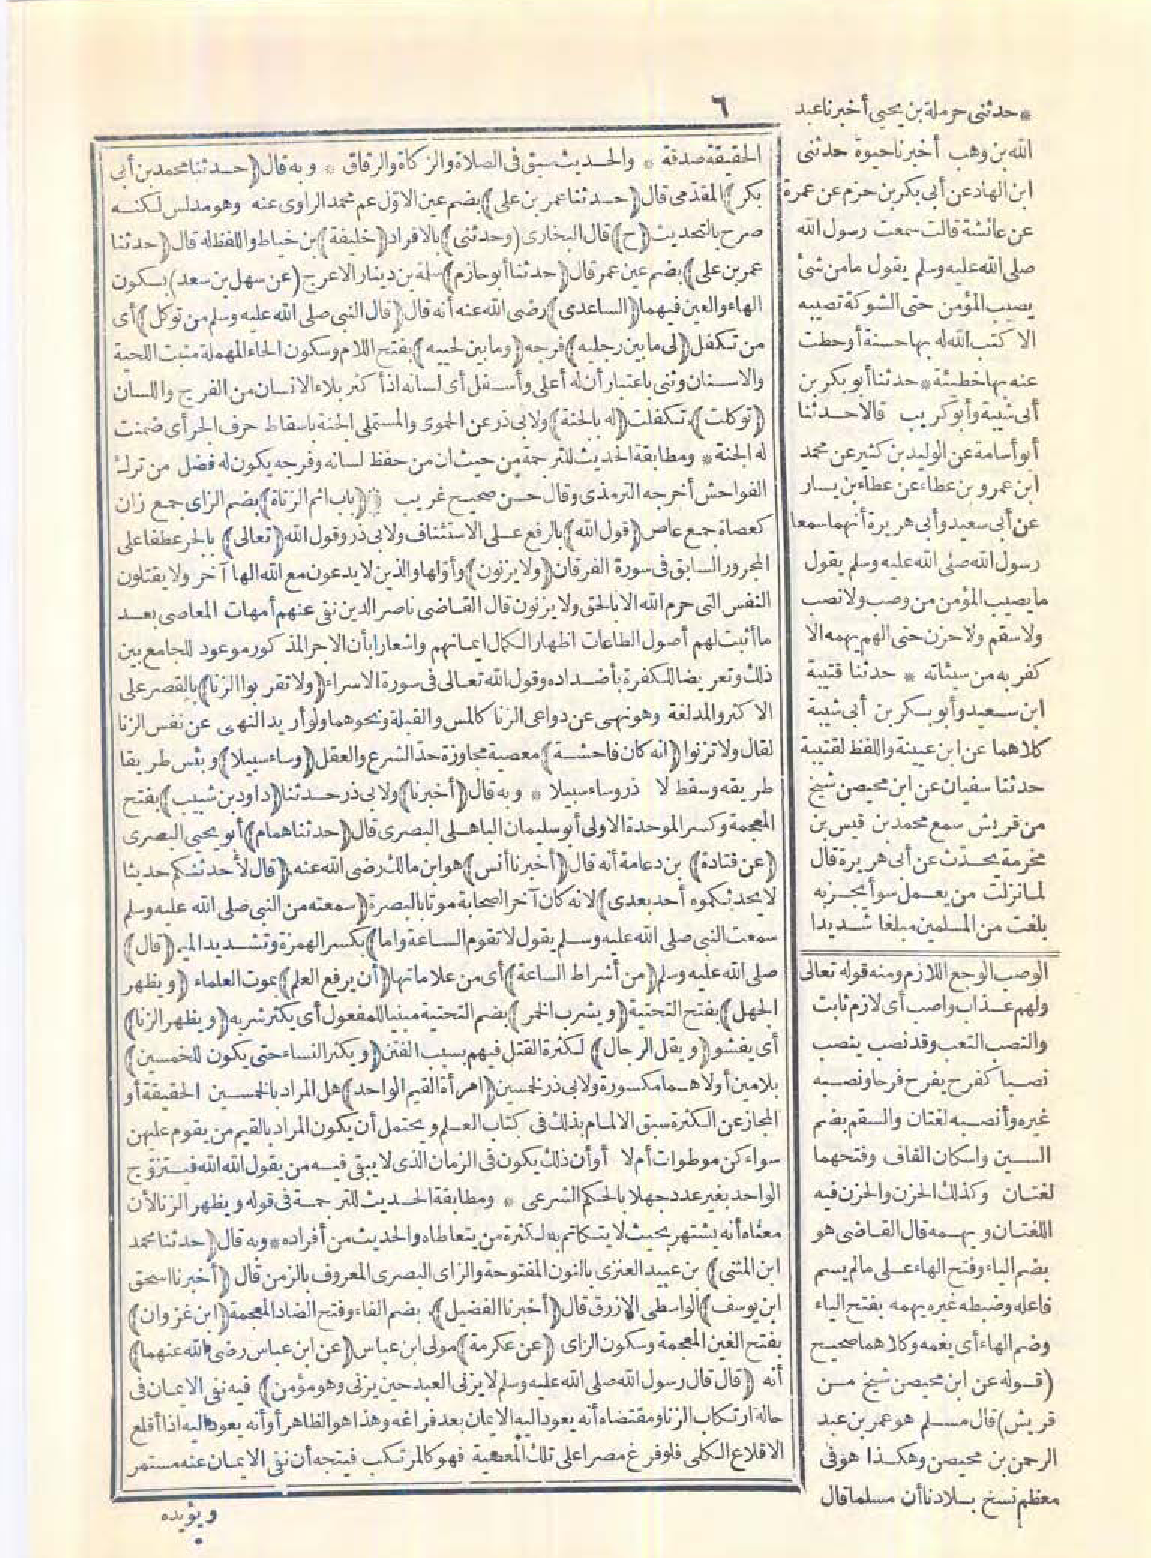 ٦
الحقيقة صدقة * والحديث سبق فى الصلاة والزكاة والرقاق * وبه قال (حدثنا محمد بن أبى
بكر) المقدمى قال (حدثنا عمر بن على) بضم عين الاوّل عم محمد الراوى عنه وهو مدلس لكنه
صرح بالتحديث (ح) قال البخارى (وحدثنى) بالافراد (خليفة) بن خياط واللفظ له قال (حدثنا
عمر بن على) بضم عين عمر قال (حدثنا أبو حازم) سلمة بن دينار الاعرج (عن سهل بن سعد) بسكون
الهاء والعين فيهما (الساعدى) رضى الله عنه أنه قال (قال النبى صلى الله عليه وسلم من توكل) أى
من تكفل (لى ما بين رجليه) فرجه (وما بين لحييه) بفتح اللام وسكون الحاء المهملة منبت اللحية
والاسنان وثنى باعتبار أن له أعلى وأسفل أى لسانه اذ أكثر بلاء الانسان من الفرج واللسان
(توكلت) تكفلت (له بالجنة) ولابى ذر عن الحموى والمستملى الجنة باسقاط حرف الجر أى ضمنت
له الجنة * ومطابقة الحديث للترجمة من حيث ان من حفظ لسانه وفرجه يكون له فضل من ترك
الفواحش أخرجه الترمذى وقال حسن صحيح غريب (باب اثم الزناة) بضم الزاى جمع زان
كعصاة جمع عاص (قول الله) بالرفع على الاستئناف ولابى ذر وقول الله (تعالى) بالجر عطفا على
المجرور السابق فى سورة الفرقان (ولا يزنون) وأوّلها والذين لا يدعون مع الله الها آخر ولا يقتلون
النفس التى حرم الله الا بالحق ولا يزنون قال القاضى ناصر الدين نفى عنهم أمهات المعاصى بعد
ما أثبت لهم أصول الطاعات اظهار الكمال ايمانهم واشعارا بأن الاجر المذكور موعود للجامع بين
ذلك وتعريضا للكفرة بأضداده وقول الله تعالى فى سورة الاسراء (ولا تقربوا الزنا) بالقصر على
الاكثر والمد لغة وهو نهى عن دواعى الزنا كالمس والقبلة ونحوهما ولو أريد النهى عن نفس الزنا
لقال ولا تزنوا (انه كان فاحشة) معصية مجاوزة حدّ الشرع والعقل (وساء سبيلا) وبئس طريقا
طريقه وسقط لا ذر وساء سبيلا * وبه قال (أخبرنا) ولابى ذر حدثنا (داود بن شبيب) بفتح
المعجمة وكسر الموحدة الاولى أبو سليمان الباهلى البصرى قال (حدثنا همام) أبو يحيى البصرى
(عن قتادة) بن دعامة أنه قال (أخبرنا أنس) هو ابن مالك رضى الله عنه (قال لأحدثنكم حديثا
لا يحدثكموه أحد بعدى) لانه كان آخر الصحابة موتا بالبصرة (سمعته من النبى صلى الله عليه وسلم
سمعت النبى صلى الله عليه وسلم يقول لا تقوم الساعة واما) بكسر الهمزة وتشديد الميم (قال)
صلى الله عليه وسلم (من أشراط الساعة) أى من علاماتها (أن يرفع العلم) بموت العلماء (ويظهر
الجهل) بفتح التحتية (ويشرب الخمر) بضم التحتية مبنيا للمفعول أى يكثر شربه (ويظهر الزنا)
أى يفشو (ويقل الرجال) لكثرة القتل فيهم بسبب الفتن (ويكثر النساء حتى يكون للخمسين)
بلامين أولاهما مكسورة ولابى ذر لخمسين (امرأة القيم الواحد) هل المراد بالخمسين الحقيقة أو
المجاز عن الكثرة سبق الالمام بذلك فى كتاب العلم ويحتمل أن يكون المراد بالقيم من يقوم عليهن
سواء كن موطوآت أم لا أو أن ذلك يكون فى الزمان الذى لا يبقى فيه من يقول الله الله فيتزوّج
الواحد بغير عدد جهلا بالحكم الشرعى * ومطابقة الحديث للترجمة فى قوله ويظهر الزنا لأن
معناه أنه يشتهر بحيث لا يتكاتم به لكثرة من يتعاطاه والحديث من أفراده * وبه قال (حدثنا محمد
ابن المثنى) بن عبيد العنزى بالنون المفتوحة والزاى البصرى المعروف بالزمن قال (أخبرنا اسحق
ابن يوسف) الواسطى الازرق قال (أخبرنا الفضيل) بضم الفاء وفتح الضاد المعجمة (ابن غزوان)
بفتح الغين المعجمة وسكون الزاى (عن عكرمة) مولى ابن عباس (عن ابن عباس رضى الله عنهما)
أنه (قال قال رسول الله صلى الله عليه وسلم لا يزنى العبد حين يزنى وهو مؤمن) فيه نفى الايمان فى
حالة ارتكاب الزنا ومقتضاه أنه يعود اليه الايمان بعد فراغه وهذا هو الظاهر أو أنه يعود اليه اذا أقلع
الاقلاع الكلى فلو فرغ مصرا على تلك المعصية فهو كالمرتكب فيتجه أن نفى الايمان عنه مستمر
ويؤيده
* حدثنى حرملة بن يحيى أخبرنا عبد
الله بن وهب أخبرنا حيوة حدثنى
ابن الهاد عن أبى بكر بن حزم عن عمرة
عن عائشة قالت سمعت رسول الله
صلى الله عليه وسلم يقول ما من شئ
يصيب المؤمن حتى الشوكة تصيبه
الا كتب الله له بها حسنة أو حطت
عنه بها خطيئة * حدثنا أبو بكر بن
أبى شيبة وأبو كريب قالا حدثنا
أبو أسامة عن الوليد بن كثير عن محمد
ابن عمرو بن عطاء عن عطاء بن يسار
عن أبى سعيد وأبى هريرة أنهما سمعا
رسول الله صلى الله عليه وسلم يقول
ما يصيب المؤمن من وصب ولا نصب
ولا سقم ولا حزن حتى الهم يهمه الا
كفر به من سيئاته * حدثنا قتيبة
ابن سعيد وأبو بكر بن أبى شيبة
كلاهما عن ابن عيينة واللفظ لقتيبة
حدثنا سفيان عن ابن محيصن شيخ
من قريش سمع محمد بن قيس بن
مخرمة يحدّث عن أبى هريرة قال
لما نزلت من يعمل سوأ يجز به
بلغت من المسلمين مبلغا شديدا
الوصب الوجع اللازم ومنه قوله تعالى
ولهم عذاب واصب أى لازم ثابت
والنصب التعب وقد نصب ينصب
نصبا كفرح يفرح فرحا ونصبه
غيره وأنصبه لغتان والسقم بضم
السين واسكان القاف وفتحهما
لغتان وكذلك الحزن والحزن فيه
اللغتان ويهمه قال القاضى هو
بضم الياء وفتح الهاء على ما لم يسم
فاعله وضبطه غيره يهمه بفتح الياء
وضم الهاء أى يغمه وكلاهما صحيح
(قوله عن ابن محيصن شيخ من
قريش) قال مسلم هو عمر بن عبد
الرحمن بن محيصن وهكذا هو فى
معظم نسخ بلادنا أن مسلما قال